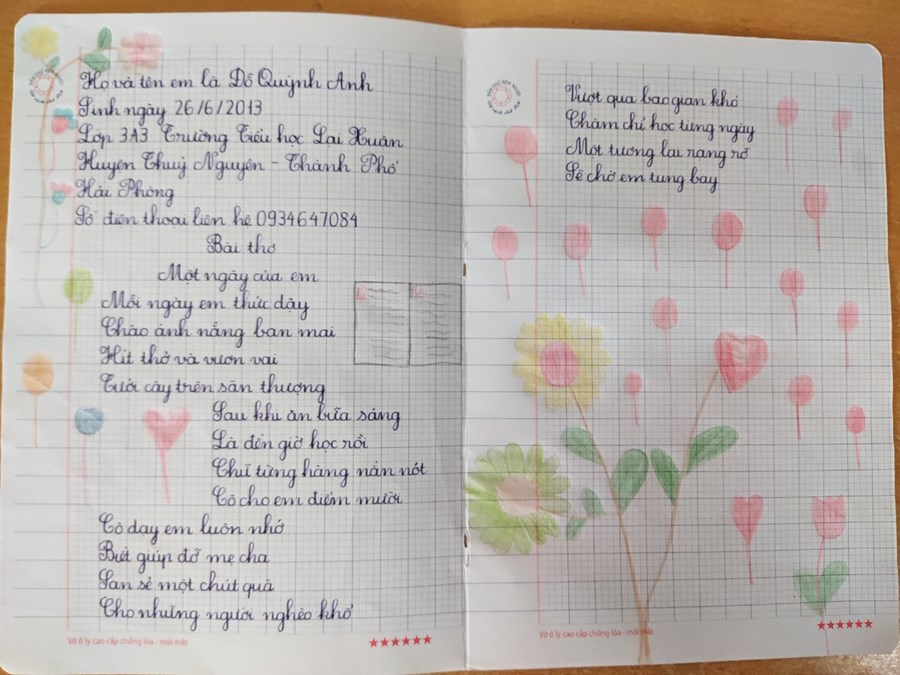 Họ và tên em là Đỗ Quỳnh Anh
Sinh ngày 26/6/2013
Lớp 3A3 Trường Tiểu học Lại Xuân
Huyện Thuỷ Nguyên - Thành Phố
Hải Phòng
Số điện thoại liên hệ 0934647084
Bài thơ
Một ngày của em
Mỗi ngày em thức dậy
Chào ánh nắng ban mai
Hít thở và vươn vai
Tưới cây trên sân thượng
Sau khi ăn bữa sáng
Là đến giờ học rồi
Chữ từng hàng nắn nót
Cô cho em điểm mười
Cô dạy em luôn nhớ
Biết giúp đỡ mẹ cha
San sẻ một chút quà
Cho những người nghèo khổ
Vở ô ly cao cấp chống lóa - mỏi mắt
Vượt qua bao gian khó
Chăm chỉ học từng ngày
Một tương lai rạng rỡ
Sẽ chờ em tung bay
Vở ô ly cao cấp chống lóa - mỏi mắt